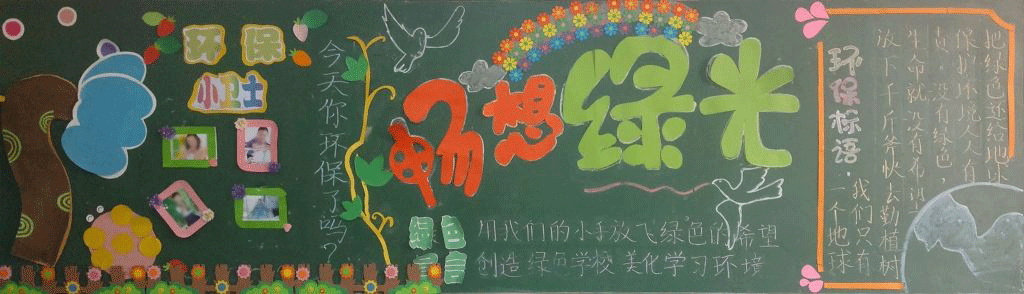 环保
小卫士
今天你环保了吗?
畅想绿光
绿色
用我们的小手放飞绿色的希望
创造绿色学校 美化学习环境
环保标语:
把绿色还给地球
保护环境人人有
责。没有绿色,
生命就没有希望
放下斧快去勤植树
我们只有
一个地球